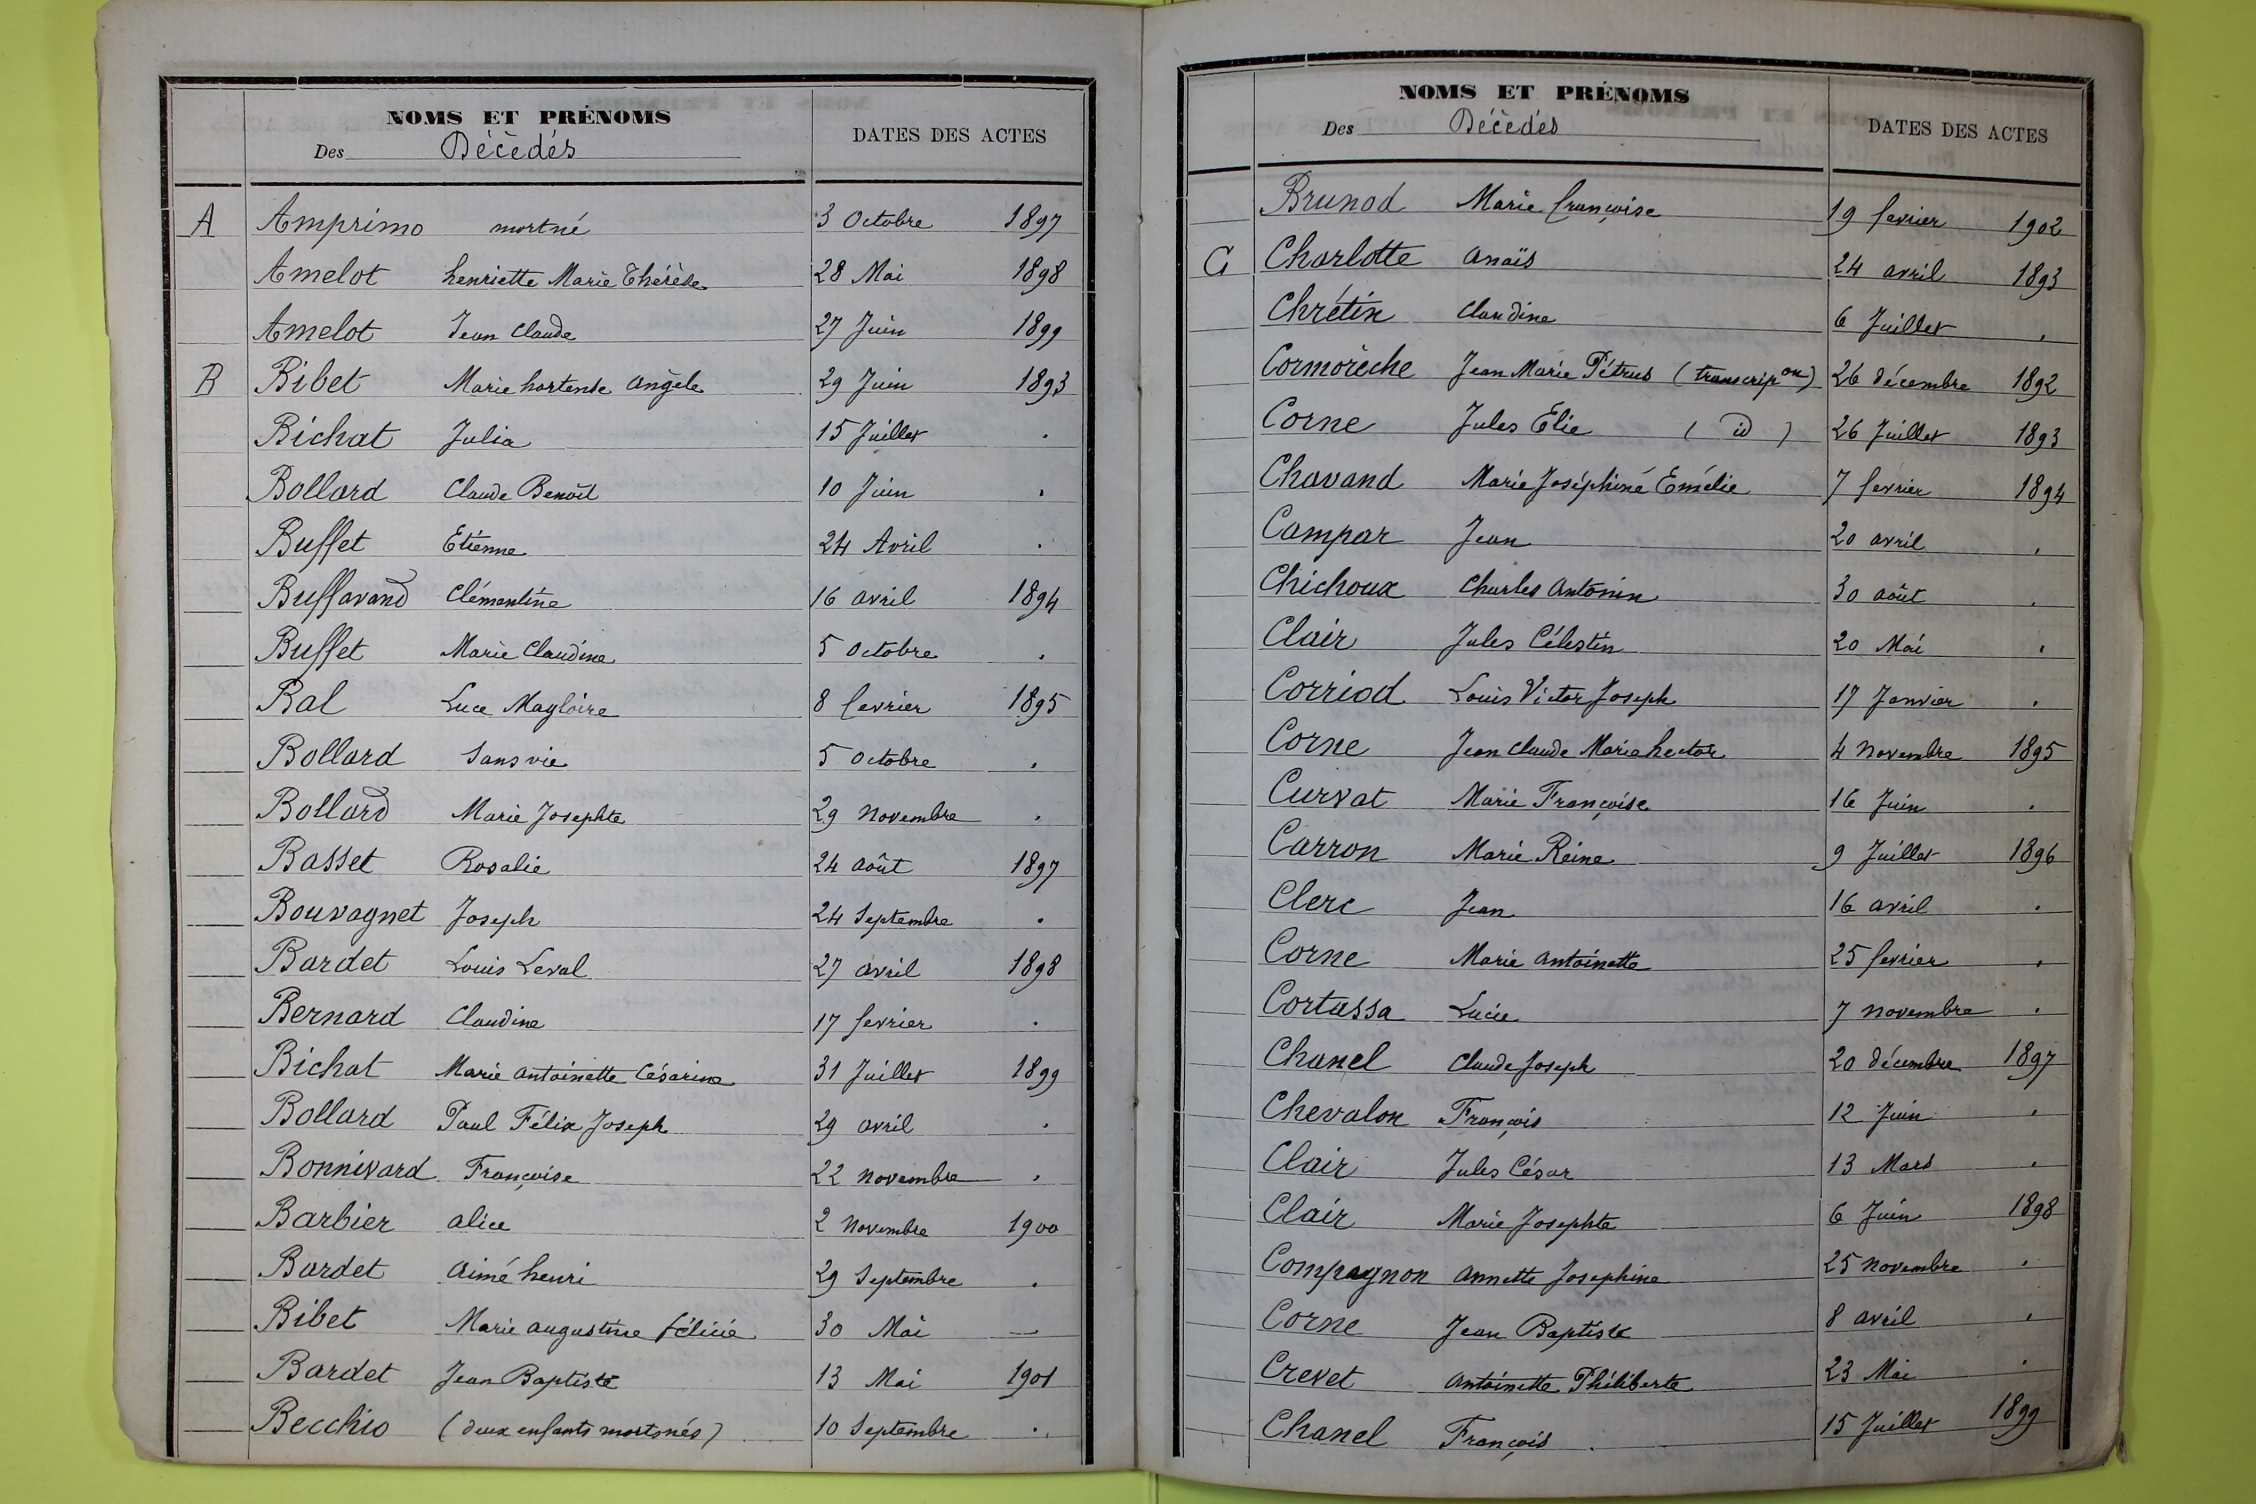 NOMS ET PRÉNOMS
Des Décédés
DATES DES ACTES
A Amprimo mortné 3 Octobre 1897
Amelot henriette Marie Thérèse 28 Mai 1898
Amelot Jean Claude 27 Juin 1899
B Bibet Marie hortense Angèle 29 Juin 1893
Bichat Julia 15 Juillet .
Bollard Claude Benoît 10 Juin .
Buffet Etienne 24 Avril .
Buffavand Clémentine 16 avril 1894
Buffet Marie Claudine 5 Octobre .
Bal Luce Magloire 8 fevrier 1895
Bollard Sans vie 5 Octobre .
Bollard Marie Josephte 29 Novembre .
Basset Rosalie 24 août 1897
Bouvagnet Joseph 24 Septembre .
Bardet Louis Leval 27 avril 1898
Bernard Claudine 17 fevrier .
Bichat Marie Antoinette Césarine 31 Juillet 1899
Bollard Paul Félix Joseph 29 avril .
Bonnivard Françoise 22 Novembre .
Barbier alice 2 Novembre 1900
Bardet Aimé henri 29 Septembre .
Bibet Marie augustine félicie 30 Mai —
Bardet Jean Baptiste 13 Mai 1901
Becchio (deux enfants mortsnés) 10 Septembre .
NOMS ET PRÉNOMS
Des Décédés
DATES DES ACTES
Brunod Marie françoise 19 fevrier 1902
C Charlotte Anaïs 24 avril 1893
Chrétin Claudine 6 Juillet .
Cormorèche Jean Marie Pétrus (transcripon) 26 décembre 1892
Corne Jules Elie ( id ) 26 Juillet 1893
Chavand Marie Joséphine Emélie 7 fevrier 1894
Campar Jean 20 avril .
Chichoux Charles Antonin 30 août .
Clair Jules Célestin 20 Mai .
Corriod Louis Victor Joseph 17 Janvier .
Corne Jean Claude Marie hector 4 Novembre 1895
Curvat Marie Françoise 16 Juin .
Carron Marie Reine 9 Juillet 1896
Clerc Jean 16 avril .
Corne Marie Antoinette 25 fevrier .
Cortassa Lucie 7 novembre .
Chanel Claude Joseph 20 décembre 1897
Chevalon François 12 Juin .
Clair Jules César 13 Mars .
Clair Marie Josephte 6 Juin 1898
Compagnon Annette Josephine 25 novembre .
Corne Jean Baptiste 8 avril .
Crevet Antoinette Philiberte 23 Mai .
Chanel François 15 Juillet 1899